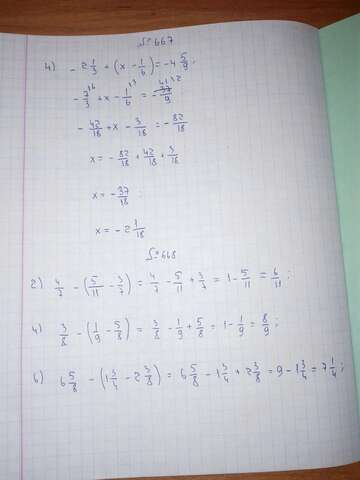 №667
4) - 2 1/3 + (x - 1/6) = -4 5/9;
- 7/3 + x - 1/6 = - 41/9
- 42/18 + x - 3/18 = - 82/18
x = - 82/18 + 42/18 + 3/18
x = - 37/18;
x = - 2 1/18
№668
2) 4/7 - (5/11 - 3/7) = 4/7 - 5/11 + 3/7 = 1 - 5/11 = 6/11;
4) 3/8 - (1/9 - 5/8) = 3/8 - 1/9 + 5/8 = 1 - 1/9 = 8/9;
6) 6 5/8 - (1 3/4 - 2 3/8) = 6 5/8 - 1 3/4 + 2 3/8 = 9 - 1 3/4 = 7 1/4;